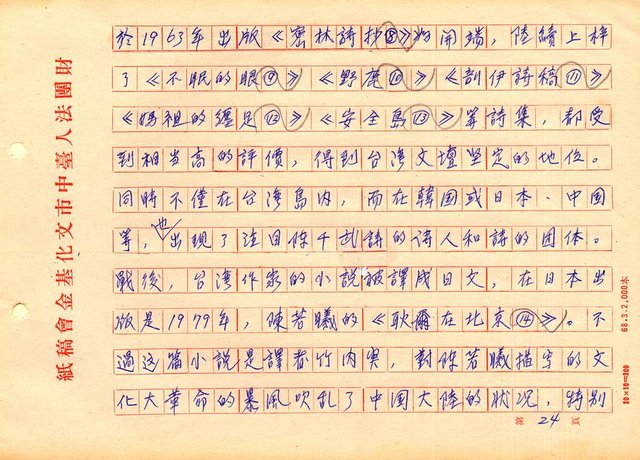 於1963年出版《密林詩抄⑧》為開端，陸續上梓
了《不眠的眼⑨》《野鹿⑩》《剖伊詩稿⑪》
《媽祖的纏足⑫》《安全島⑬》等詩集，都受
到相当高的評價，得到台湾文壇坚定的地位。
同時不僅在台湾島内，而在韓国或日本、中国
等，也出現了注目陳千武詩的诗人和詩的团体。
戰後，台湾作家的小說被譯成日文，在日本出
版是1979年，陳若曦的《耿爾在北京⑭》。不
過这篇小說是譯者竹内実，對陳若曦描写的文
化大革命的暴風吹乱了中国大陸的狀況，特别
財團法人臺中市文化基金會稿紙
68.3.2,000本
20×10=200
第24頁